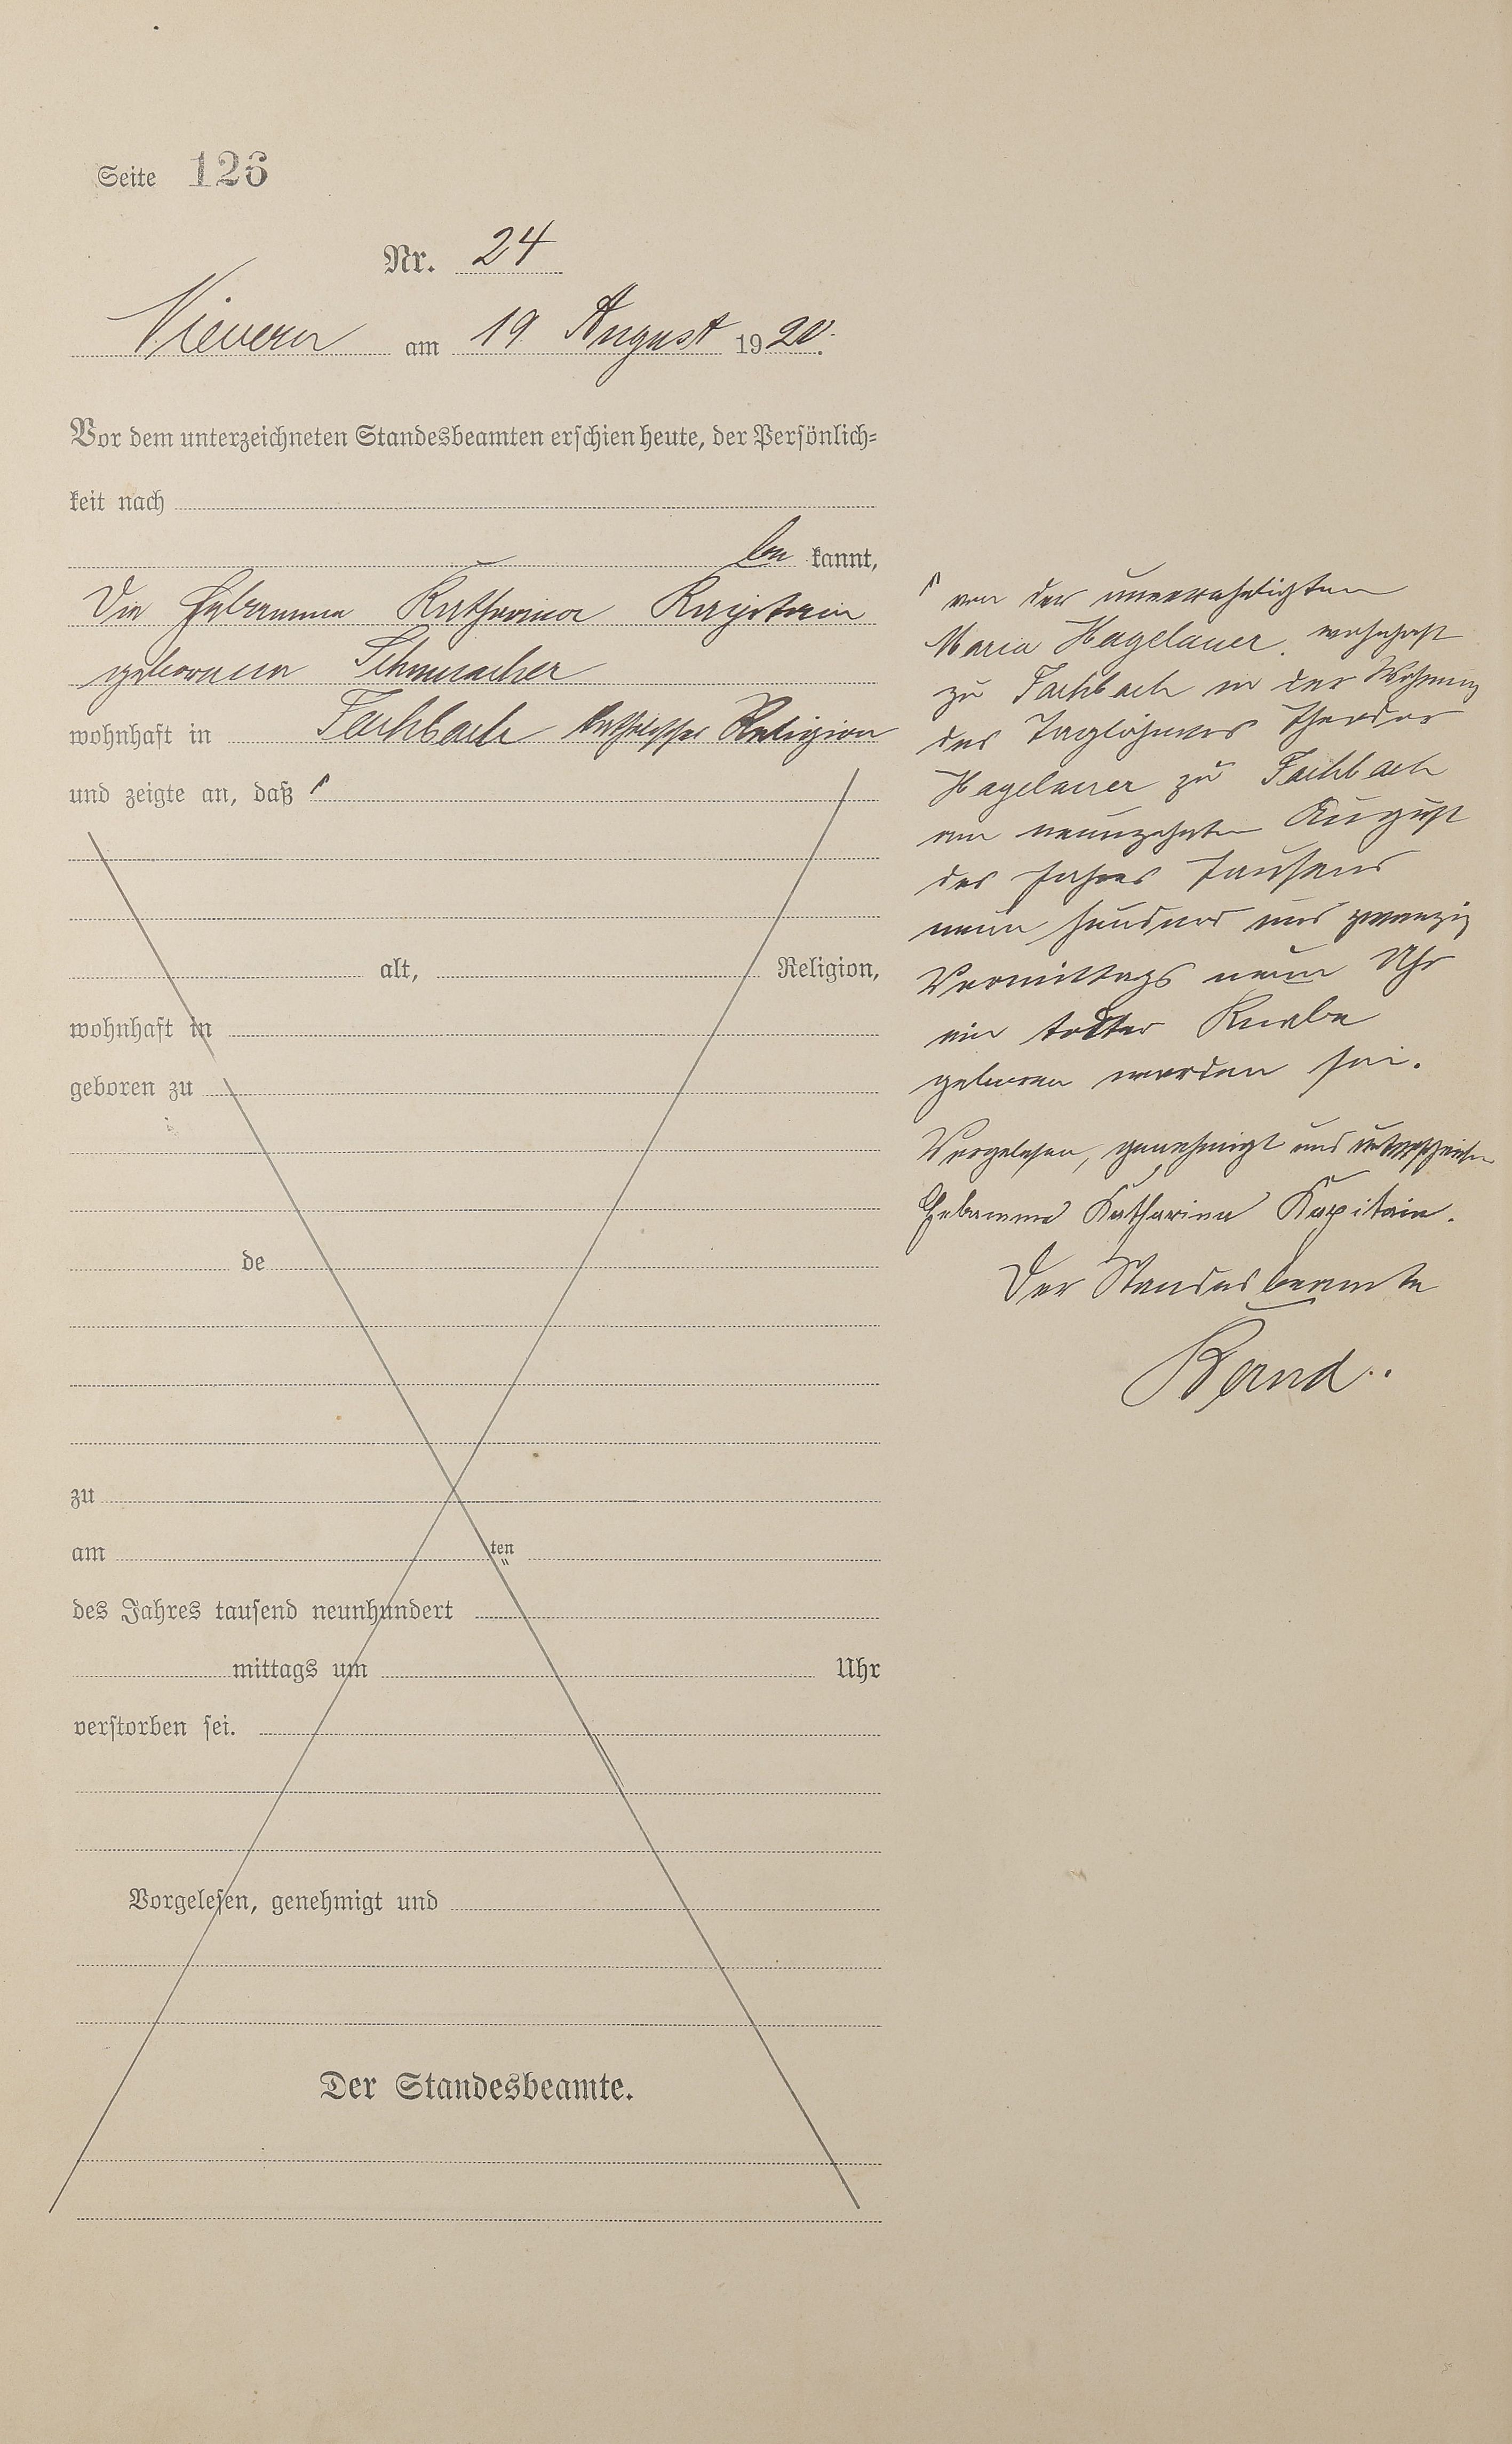 Seite 126
Nr. 24
Nievern am 19 August 1920.
Vor dem unterzeichneten Standesbeamten erschien heute, der Persönlich-
keit nach
be kannt,
die Hebamme Katharina Kapitain
geborene Schumacher
wohnhaft in Fachbach katholischer Religion
und zeigte an, daß ↾
alt, Religion,
wohnhaft in
geboren zu
de
zu
am ten
des Jahres tausend neunhundert
mittags um Uhr
verstorben sei.
Vorgelesen, genehmigt und
Der Standesbeamte.
↾ von der unverehelichten
Maria Hagelauer, wohnhaft
zu Fachbach in der Wohnung
des Taglöhners Theodor
Hagelauer zu Fachbach
am neunzehnten August
des Jahres Tausend
neun hundert und zwanzig
Vormittags neun Uhr
ein todter Knabe
geboren worden sei.
Vorgelesen, genehmigt und unterschrieben
Hebamme Katharina Kapitain.
Der Standesbeamte
Bernd..